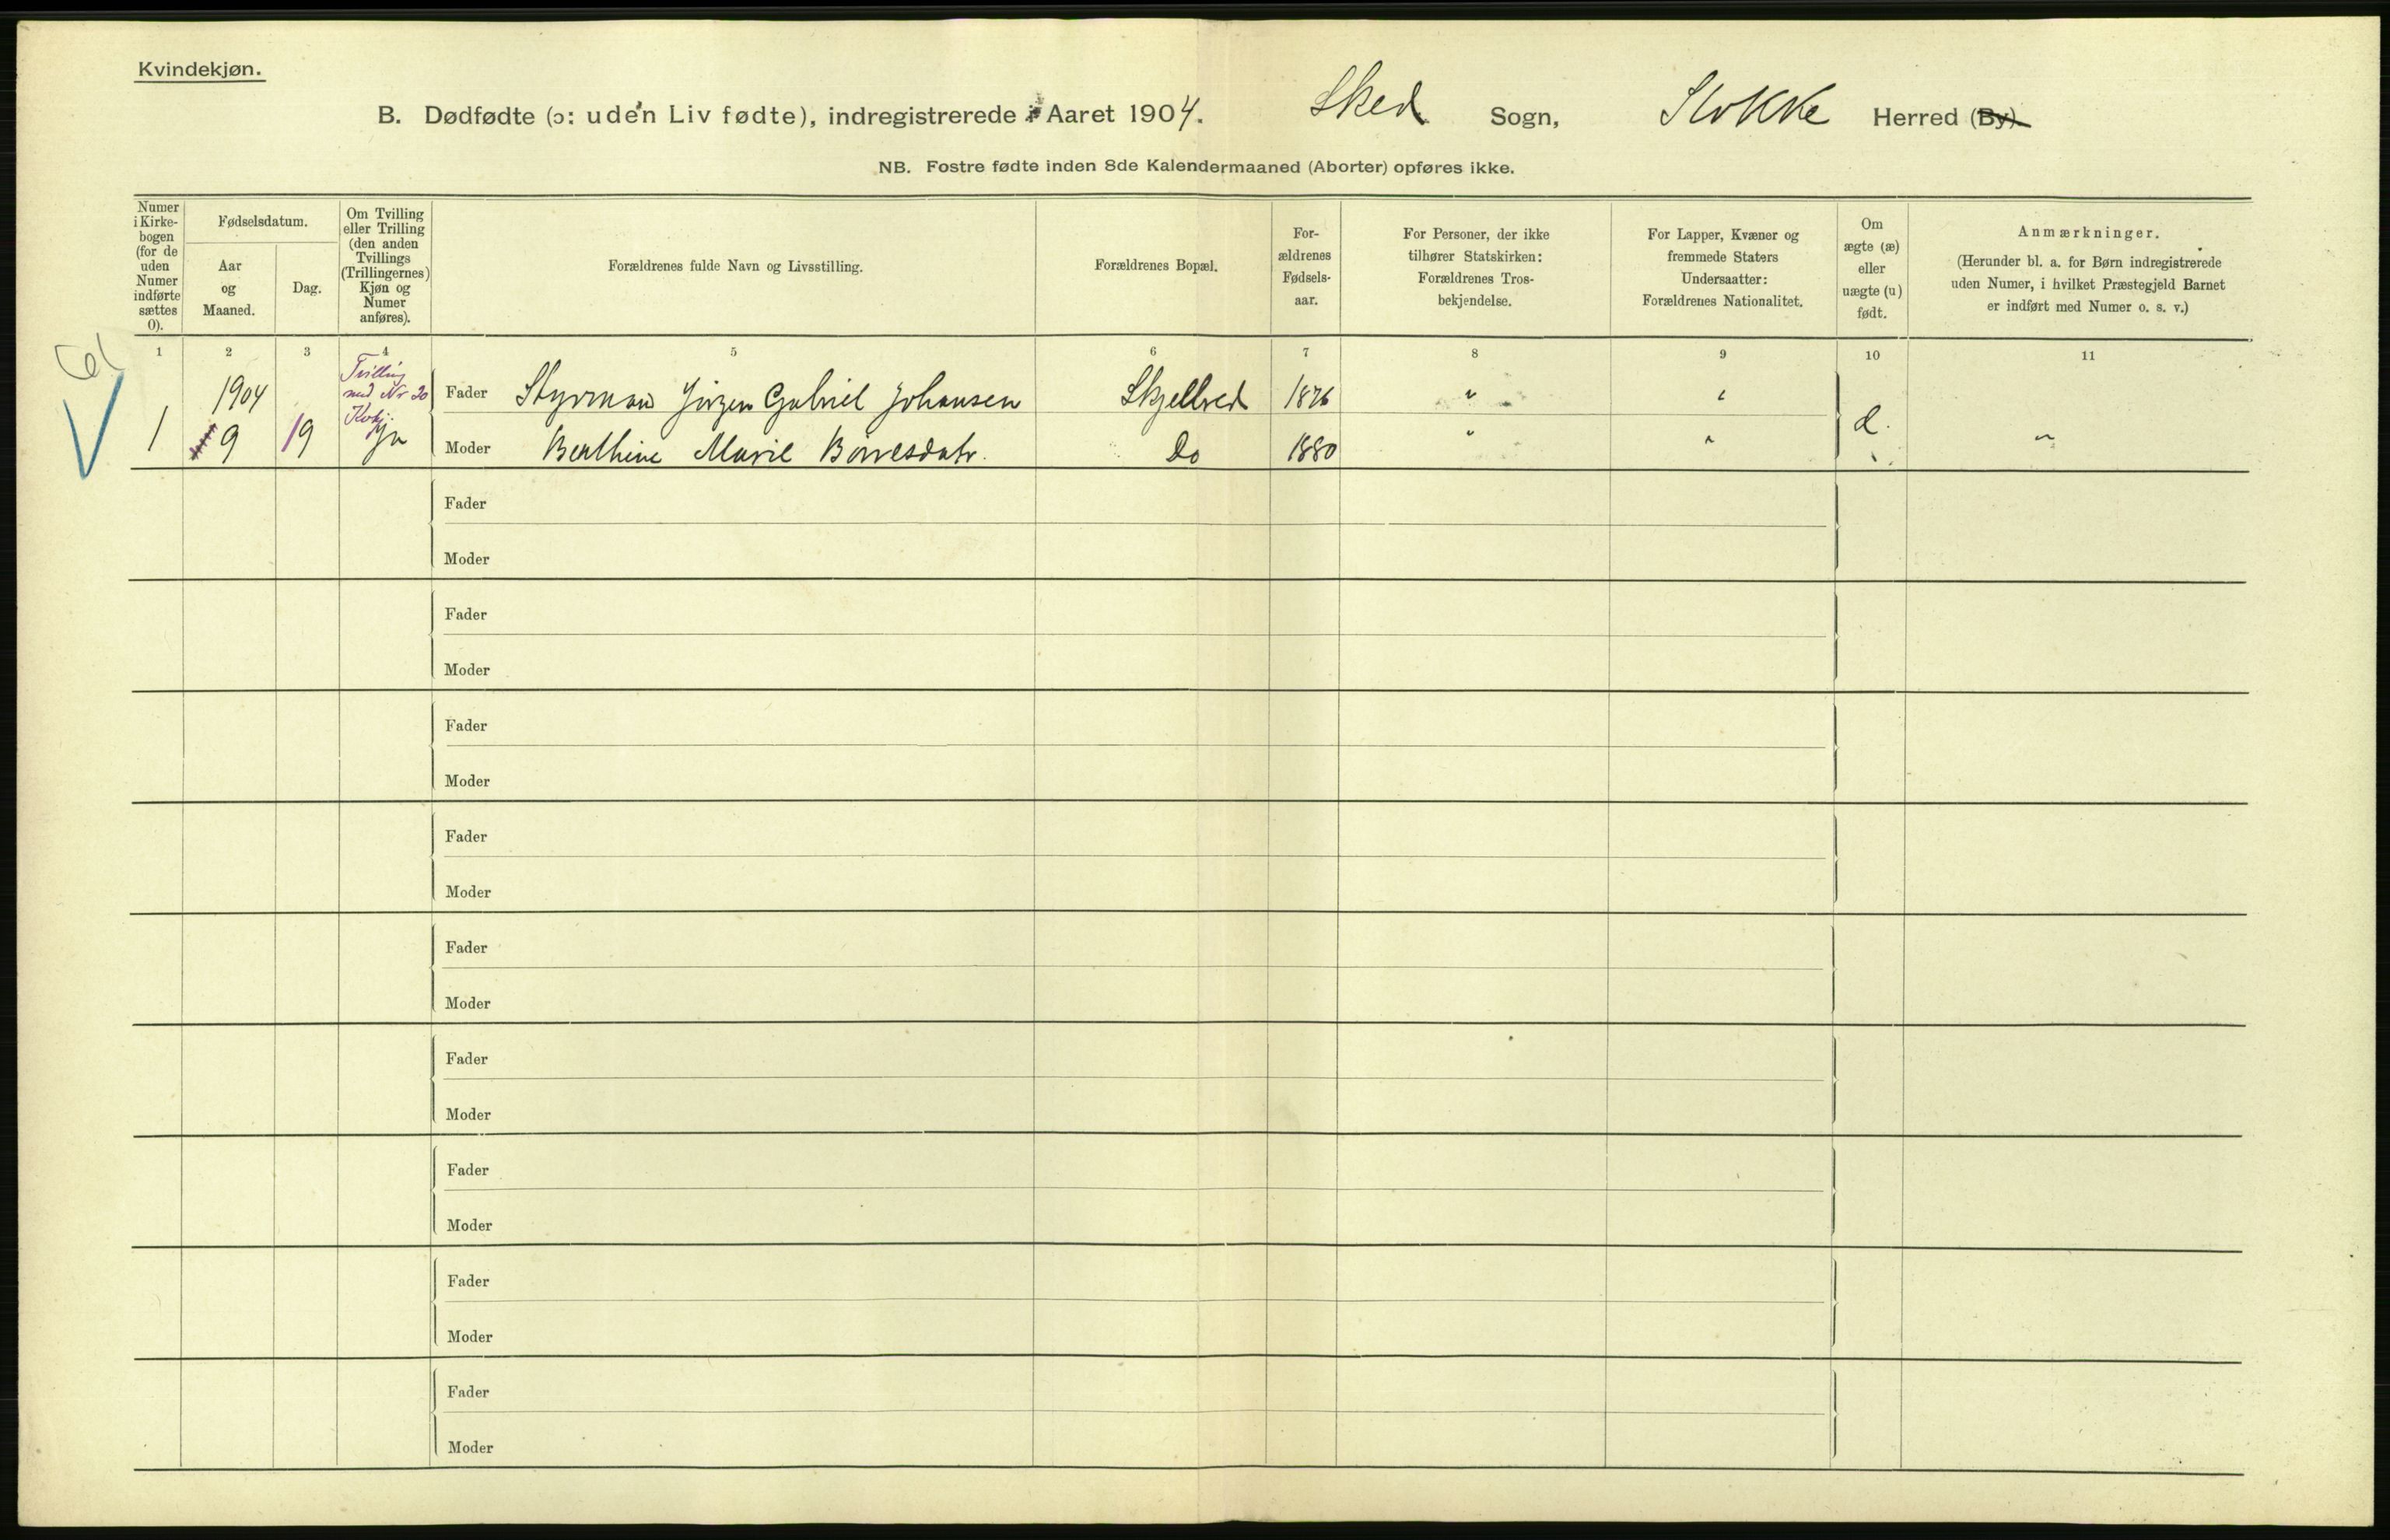 Kvindekjøn.
B. Dødfødte (ɔ: uden Liv fødte), indregistrerede i Aaret 1904. Sked Sogn, Stokke Herred (By).
NB. Fostre fødte inden 8de Kalendermaaned (Aborter) opføres ikke.
Numer i Kirke-bogen (for de uden Numer indførte sættes 0).
Fødselsdatum.
Aar og Maaned.
Dag.
Om Tvilling eller Trilling (den anden Tvillings (Trillingernes) Kjøn og Numer anføres).
Forældrenes fulde Navn og Livsstilling.
Forældrenes Bopæl.
For-ældrenes Fødsels-aar.
For Personer, der ikke tilhører Statskirken: Forældrenes Tros-bekjendelse.
For Lapper, Kvæner og fremmede Staters Undersaatter: Forældrenes Nationalitet.
Om ægte (æ) eller uægte (u) født.
Anmærkninger.
(Herunder bl. a. for Børn indregistrerede uden Numer, i hvilket Præstegjeld Barnet er indført med Numer o. s. v.)
1 2 3 4 5 6 7 8 9 10 11
Tvilling
1904 med Nr 20 Fader Styrmand Jörgen Gabriel Johansen Skjellved 1876 " "
1 9 19 Ja Moder Berthine Marie Börresdatr. Do 1880 " " "
Fader
Moder
Fader
Moder
Fader
Moder
Fader
Moder
Fader
Moder
Fader
Moder
Fader
Moder
Fader
Moder
Fader
Moder